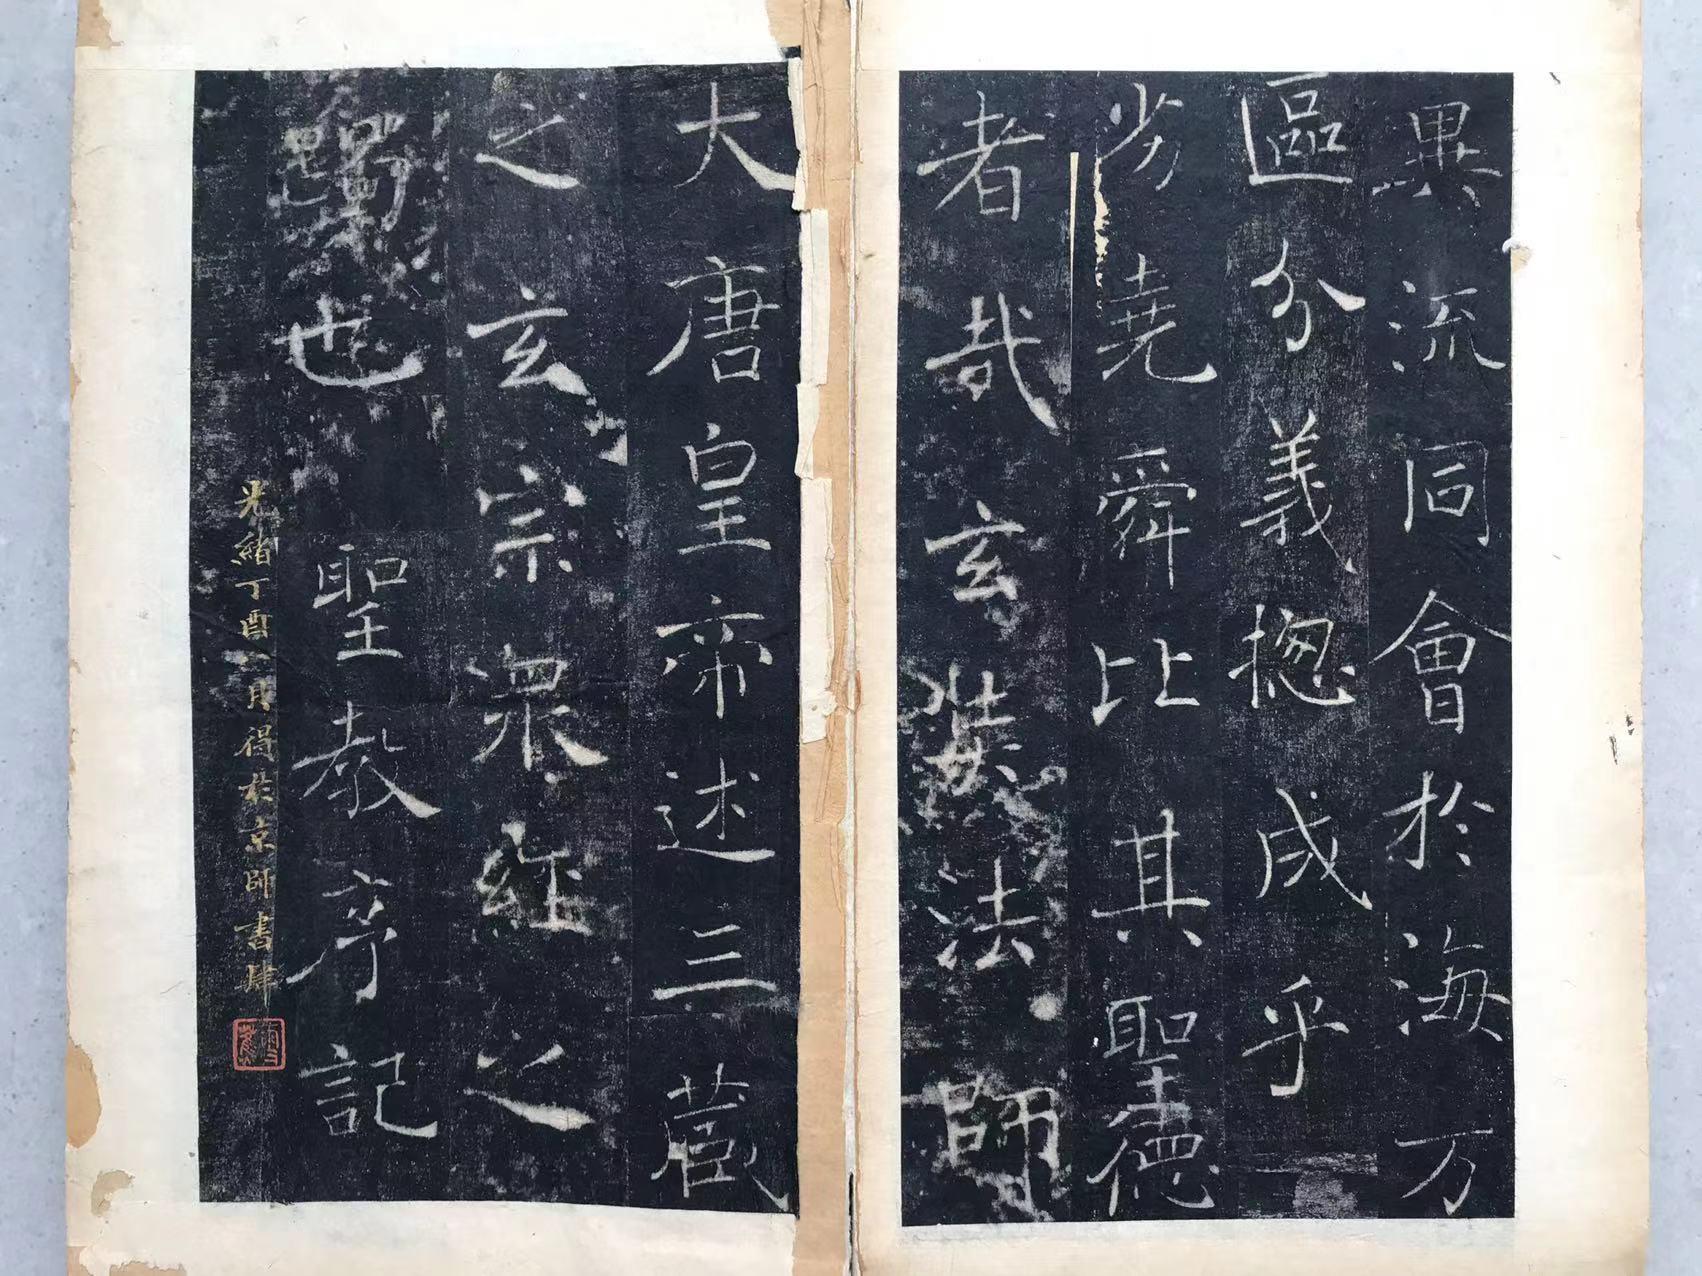 異流同會於海万
區分義捴成乎
劣堯舜比其聖德
者哉玄奘法師
大唐皇帝述三藏
之玄宗衆經之
躅也 聖教序記
光緒丁酉月得於京師書肆